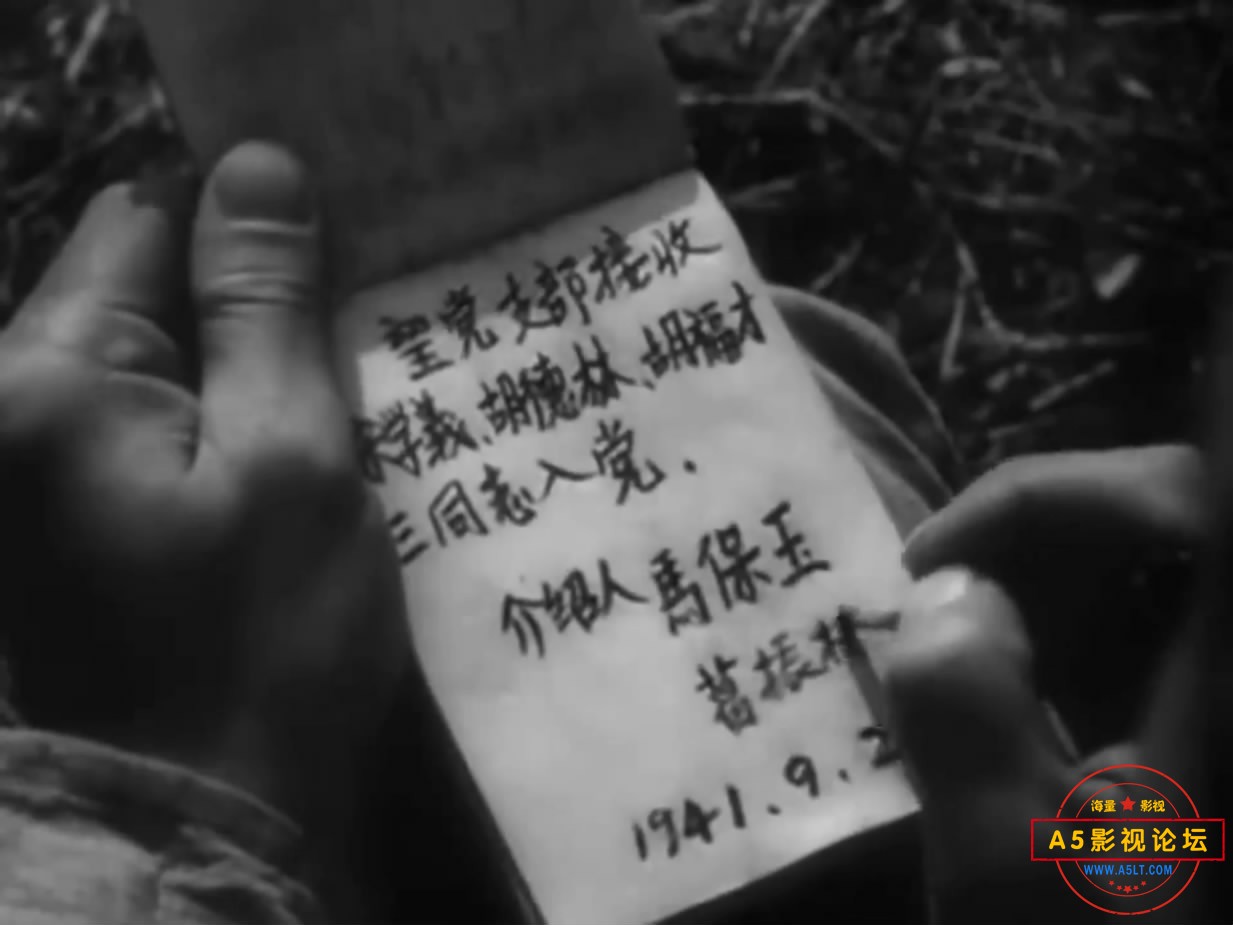 望党支部接收
宋学義、胡德林、胡福才
三同志入党.
介绍人馬保玉
葛振林
1941.9.2
海量 影视
A5影视论坛
WWW.A5LT.COM